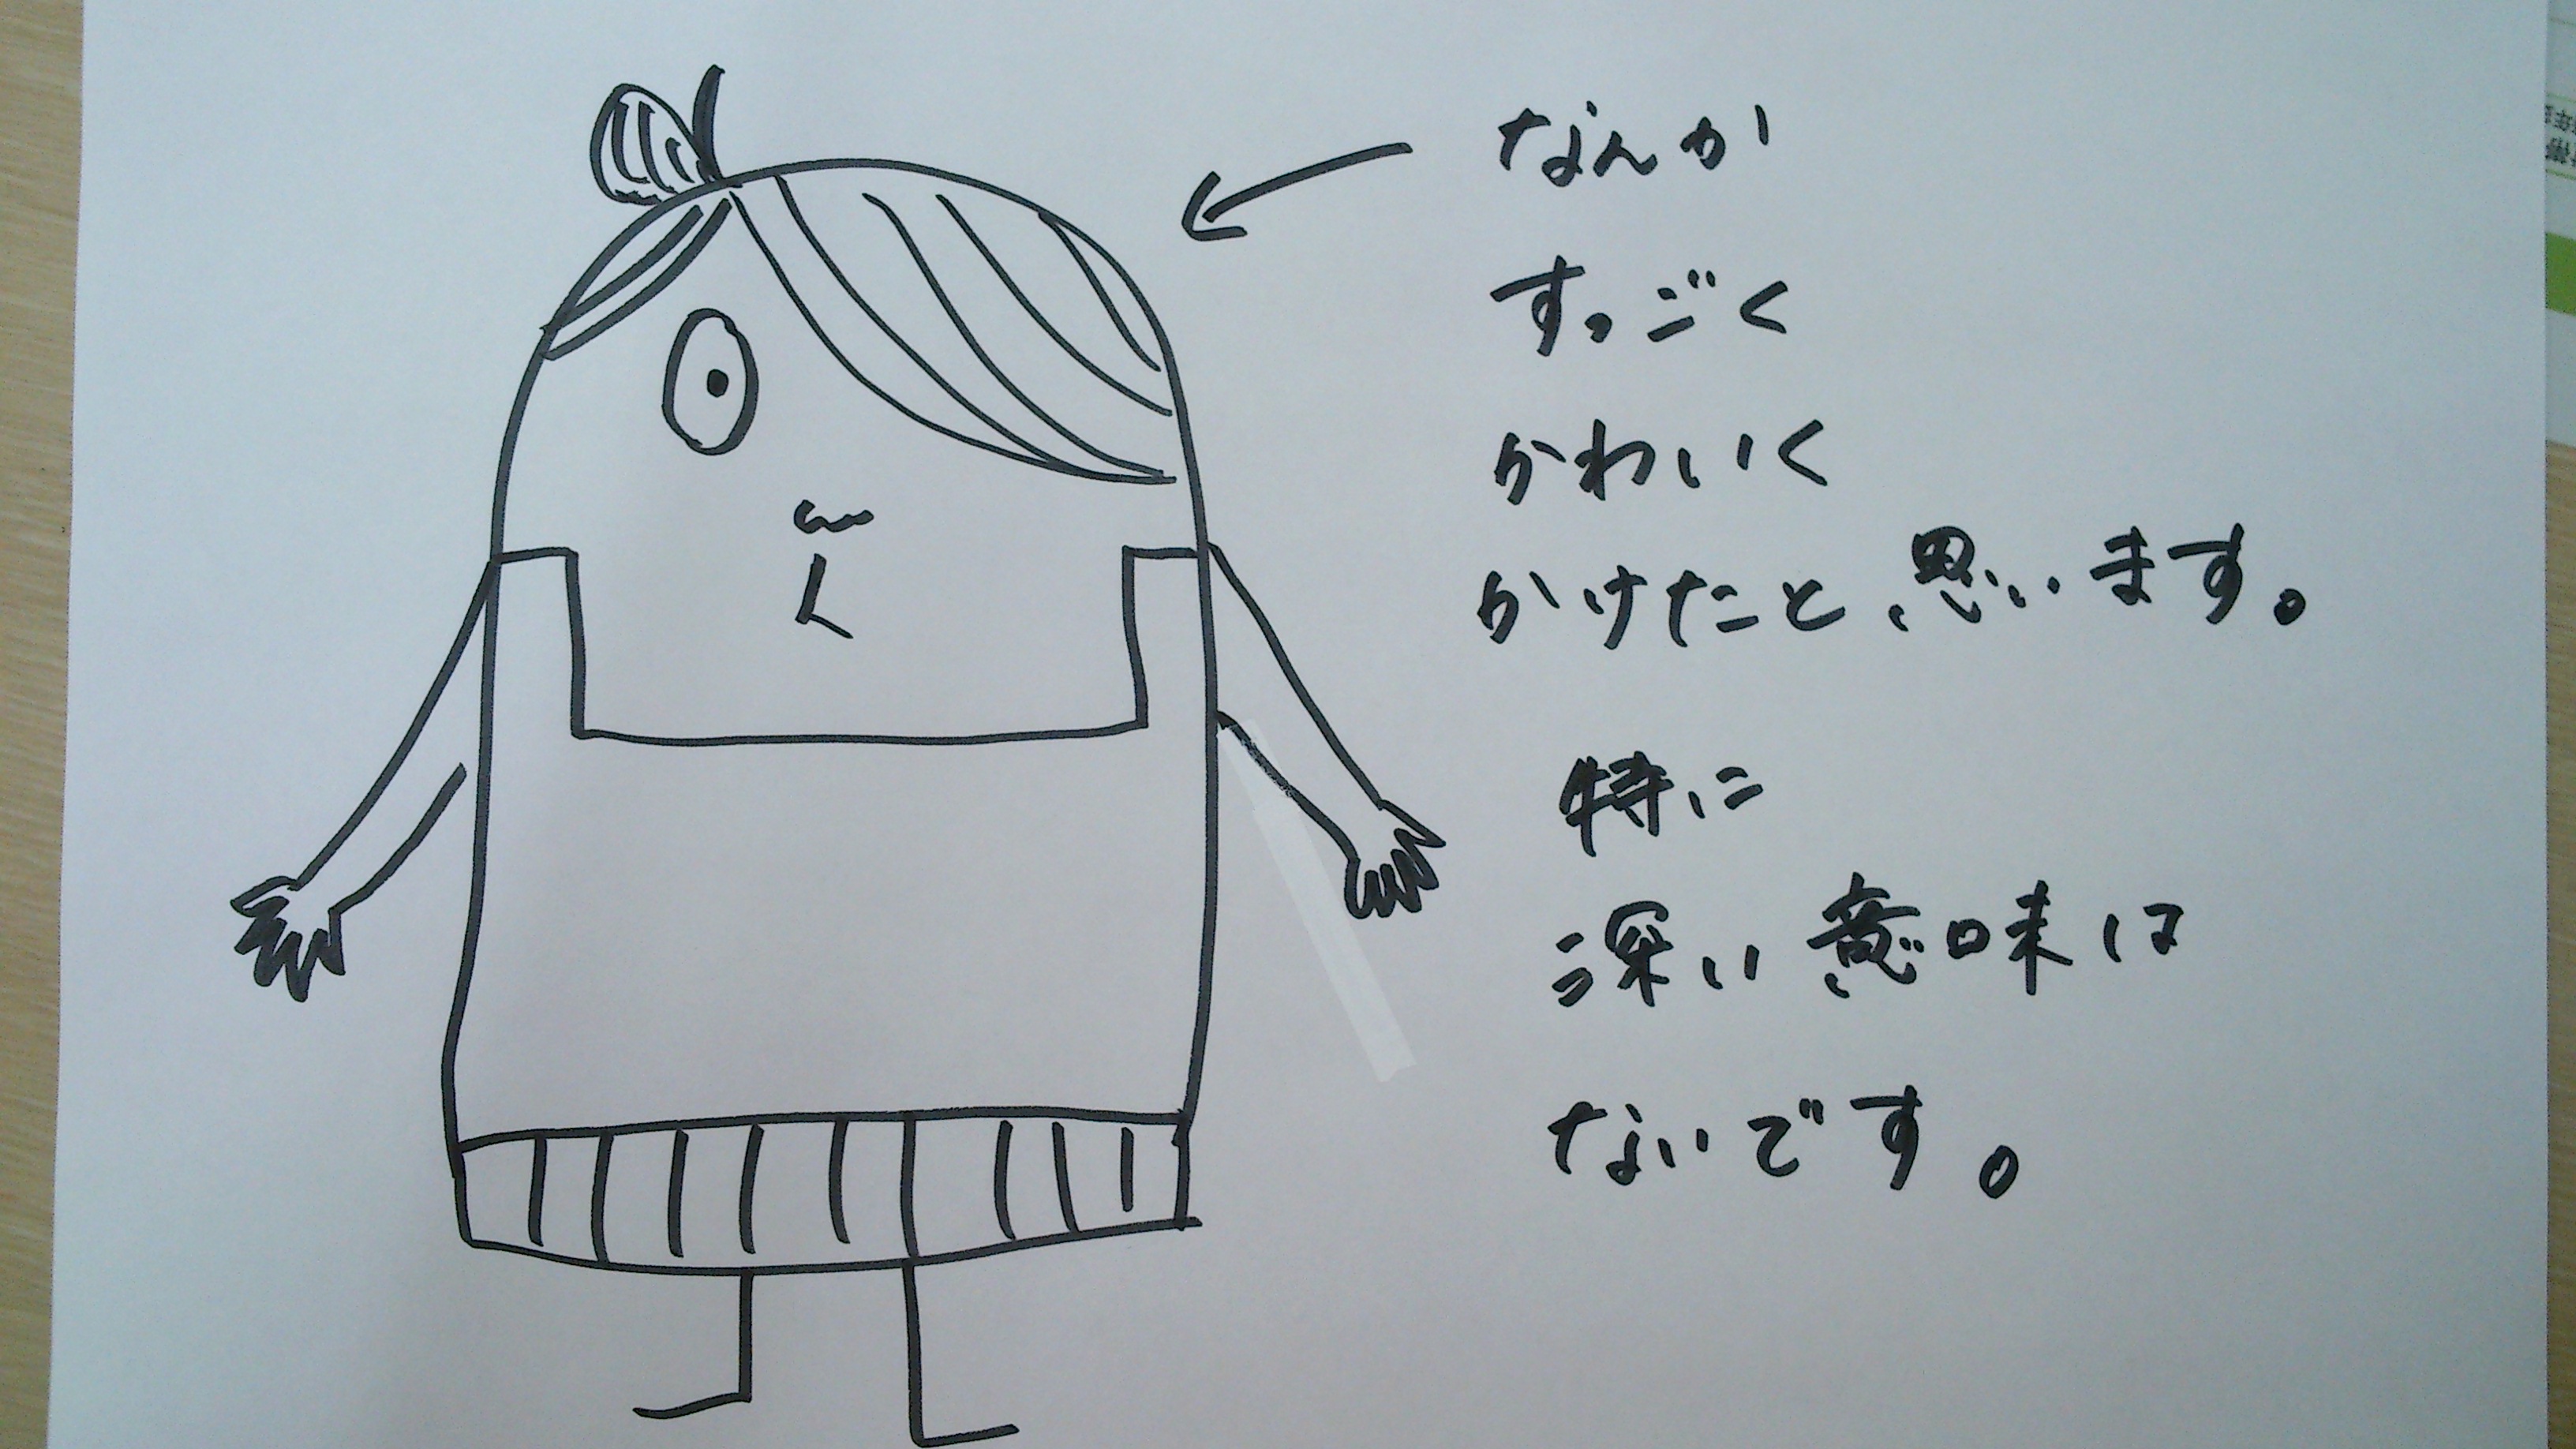 なんか
すっごく
かわいく
かけたと思います。
特に
深い意味は
ないです。